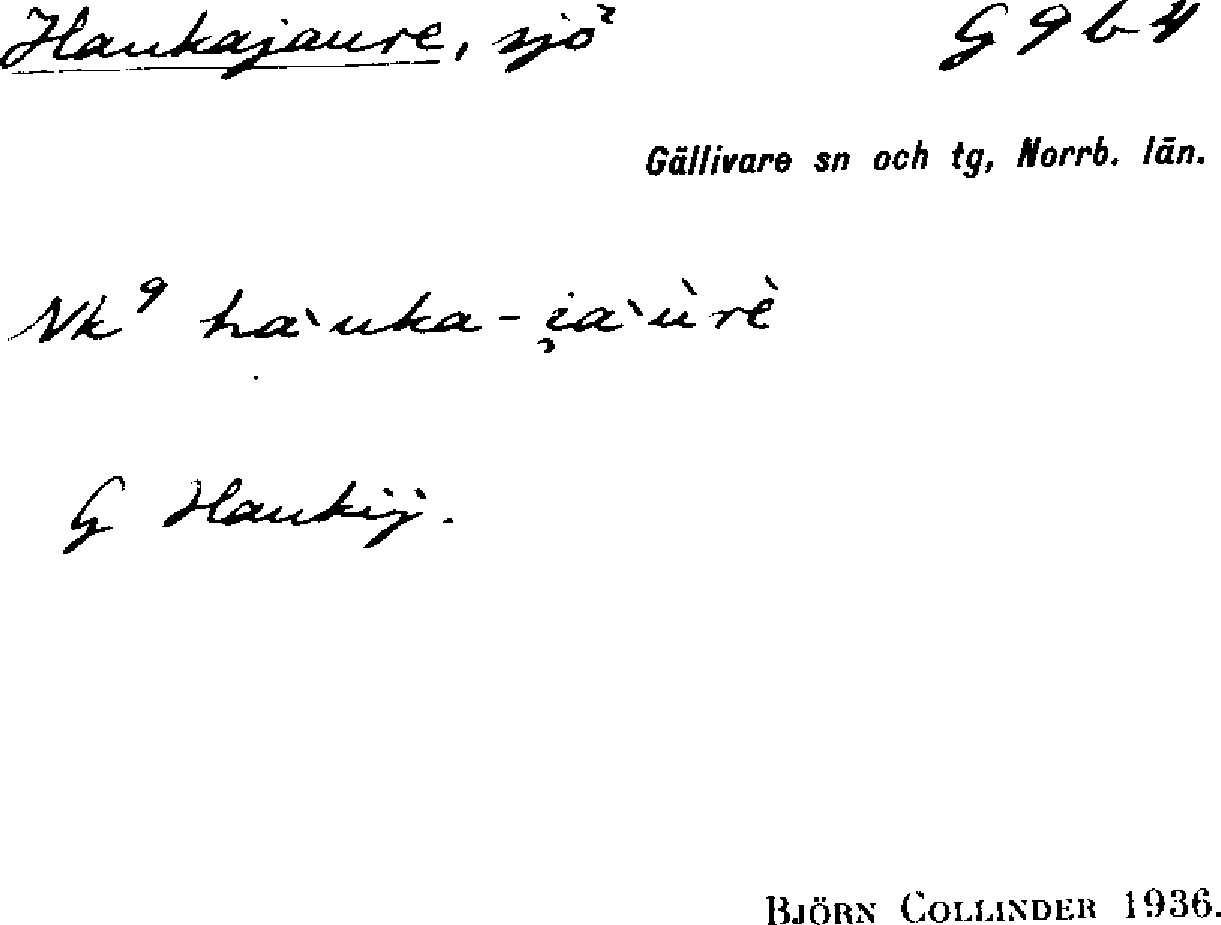 Haukajaure, sjö G 9 b 4
Gällivare sn och tg, Norrb. län.
Nk⁹ ha`uka-i̯a`ùrè
G Haukij.
BJÖRN COLLINDER 1936.